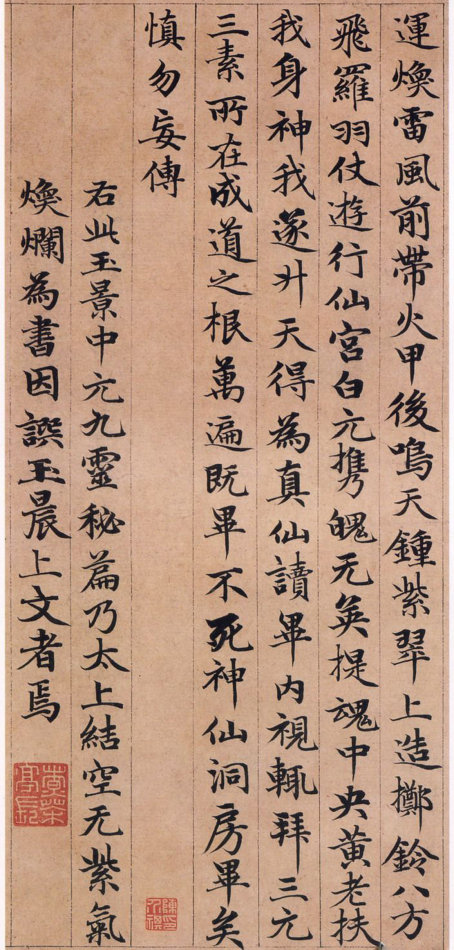 運煥雷風前帶火甲後嗚天鍾紫翠上造擲鈴八方
飛羅羽仗遊行仙宮白元携魄无英提魂中央黃老扶
我身神我遂升天得為真仙讀畢内視輒拜三元
三素所在成道之根萬遍既畢不死神仙洞房畢矣
慎勿妄傳
右此玉景中元九靈秘篇乃太上結空无紫氣
煥爛為書因譔玉晨上文者焉